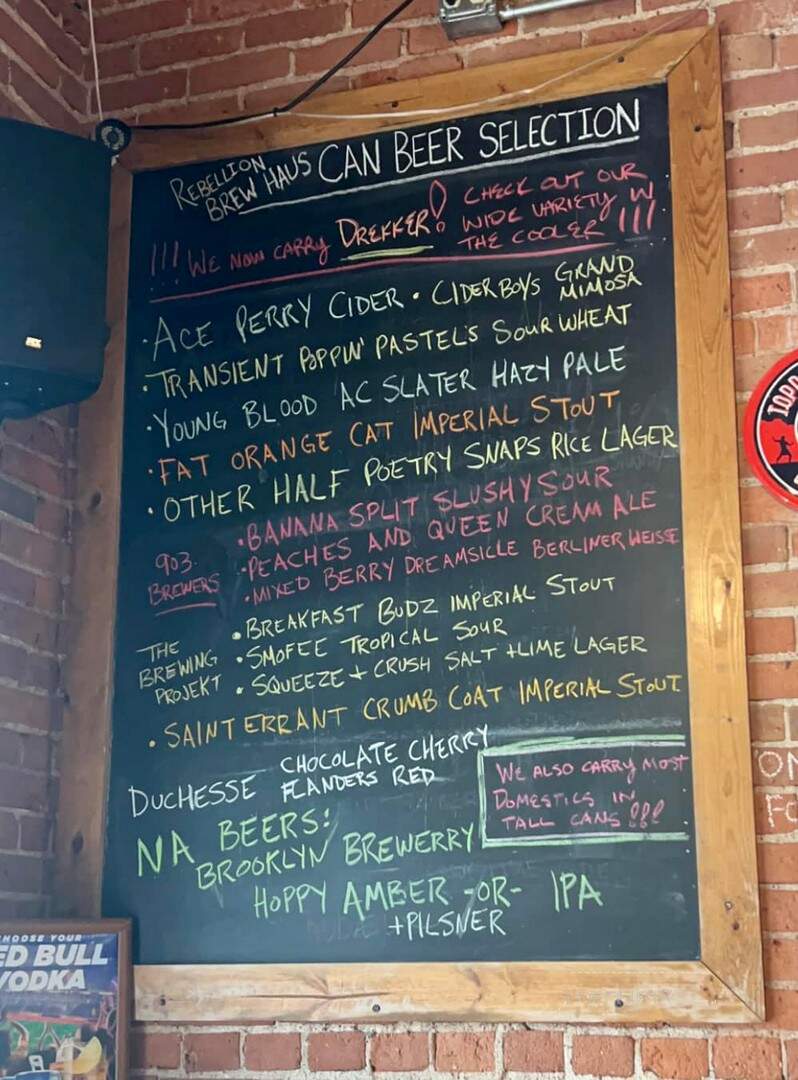 REBELLION
BREW HAUS CAN BEER SELECTION
!!! WE NOW CARRY DREKKER! CHECK OUT OUR
WIDE VARIETY IN
THE COOLER !!!
• ACE PERRY CIDER • CIDERBOYS GRAND
MIMOSA
• TRANSIENT POPPIN' PASTEL'S SOUR WHEAT
• YOUNG BLOOD AC SLATER HAZY PALE
• FAT ORANGE CAT IMPERIAL STOUT
• OTHER HALF POETRY SNAPS RICE LAGER
903
BREWERS
• BANANA SPLIT SLUSHY SOUR
• PEACHES AND QUEEN CREAM ALE
• MIXED BERRY DREAMSICLE BERLINER WEISSE
THE
BREWING
PROJEKT
• BREAKFAST BUDZ IMPERIAL STOUT
• SMOFEE TROPICAL SOUR
• SQUEEZE + CRUSH SALT + LIME LAGER
• SAINT ERRANT CRUMB COAT IMPERIAL STOUT
DUCHESSE CHOCOLATE CHERRY
FLANDERS RED
WE ALSO CARRY MOST
DOMESTICS IN
TALL CANS !!!
NA BEERS:
BROOKLYN BREWERRY
HOPPY AMBER -OR- IPA
+PILSNER
TOPO
ON
FO
CHOOSE YOUR
ED BULL
VODKA